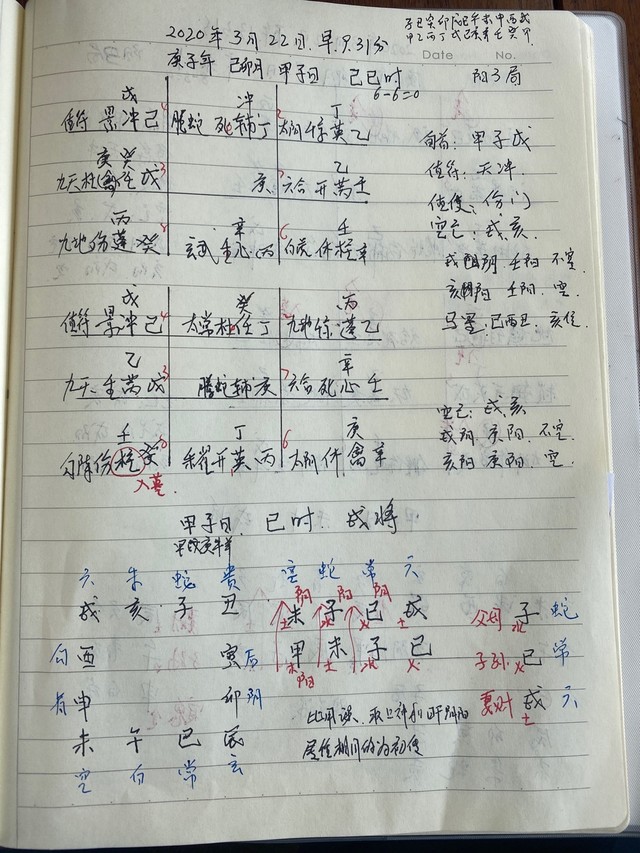 子丑寅卯辰巳午未申酉戌
甲乙丙丁戊己庚辛壬癸甲
2020年3月22日.早9.31分
Date No.
庚子年 己卯月 甲子日 己巳时 阳3局
6-6=0
戊 冲 丁
值符 景冲己 4 腾蛇 死辅丁 太阴 惊英乙
旬首: 甲子戊
庚癸 乙
九天杜 壬戊 3 庚 六合开芮壬
值符: 天冲
值使: 伤门
丙 辛 壬
九地伤蓬癸 8 玄武生心丙 6 白虎休柱辛
空亡: 戌亥
戌阳 壬阳 不空
亥阴 壬阳. 空
戊 癸 丙
值符 景冲己 4 太常杜任丁 九地惊蓬乙
马星: 巳酉丑. 亥位.
乙 辛
九天生芮戊 3 腾蛇辅庚 7 六合死心壬
空亡: 戌亥
壬 丁 庚
勾陈伤柱癸 朱雀开英丙 6 太阴休禽辛
戌阳. 庚阳. 不空
亥阴 庚阳. 空
入墓.
甲子日. 巳时 戌将.
甲戊庚牛羊
六 朱 蛇 贵 空 蛇 常 六
阴 阳 阴
戌 亥 子 丑 未 子 巳 戌 父母 子 蛇
土 水 火 土 水
勾 酉 寅 后 甲 未 子 巳 子孙 巳 常
木 土 水 火 火
阳
青 申 卯 阴 妻财 戌 六
土
未 午 巳 辰
空 白 常 玄
比用课、取上神和日干阴阳
属性相同的为初传